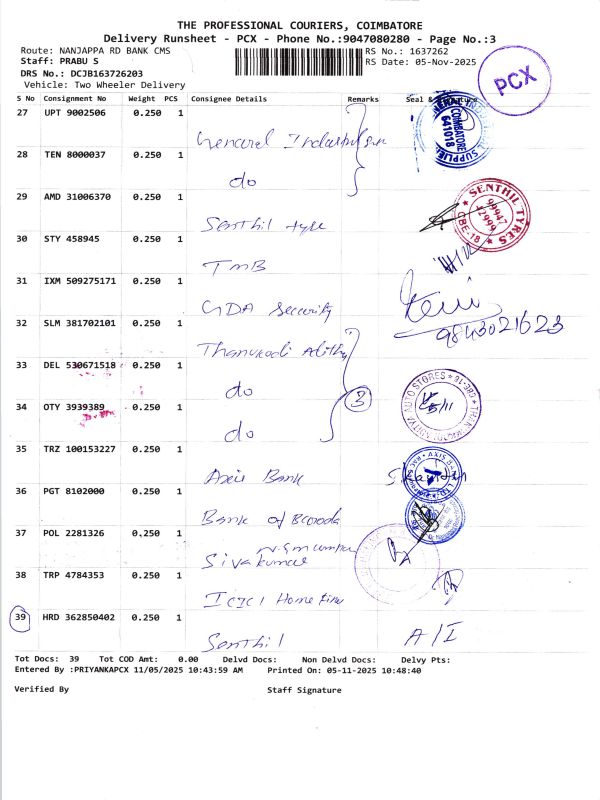 THE PROFESSIONAL COURIERS, COIMBATORE
Delivery Runsheet - PCX - Phone No.:9047080280 - Page No.:3
Route: NANJAPPA RD BANK CMS
RS No.: 1637262
Staff: PRABU S
RS Date: 05-Nov-2025
DRS No.: DCJB163726203
Vehicle: Two Wheeler Delivery
PCX
S No Consignment No Weight PCS Consignee Details Remarks Seal &
27 UPT 9002506 0.250 1
COIMBATORE
641018
28 TEN 8000037 0.250 1
do
29 AMD 31006370 0.250 1
Senthil tyre
SENTHIL TYRES
CBE-18
30 STY 458945 0.250 1
TMB
31 IXM 509275171 0.250 1
GDA Security
9843021623
32 SLM 381702101 0.250 1
33 DEL 530671518 0.250 1
do
3
34 OTY 3939389 0.250 1
do
35 TRZ 100153227 0.250 1
Axis Bank
36 PGT 8102000 0.250 1
Bank of Baroda
37 POL 2281326 0.250 1
Sivakumar
38 TRP 4784353 0.250 1
ICICI Home Fin
39 HRD 362850402 0.250 1
Senthil
A/I
Tot Docs: 39 Tot COD Amt: 0.00 Delvd Docs: Non Delvd Docs: Delvy Pts:
Entered By :PRIYANKAPCX 11/05/2025 10:43:59 AM Printed On: 05-11-2025 10:48:40
Verified By Staff Signature